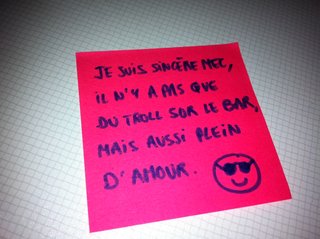 JE SUIS SINCÈRE MEC,
IL N'Y A PAS QUE
DU TROLL SUR LE BAR,
MAIS AUSSI PLEIN
D'AMOUR.